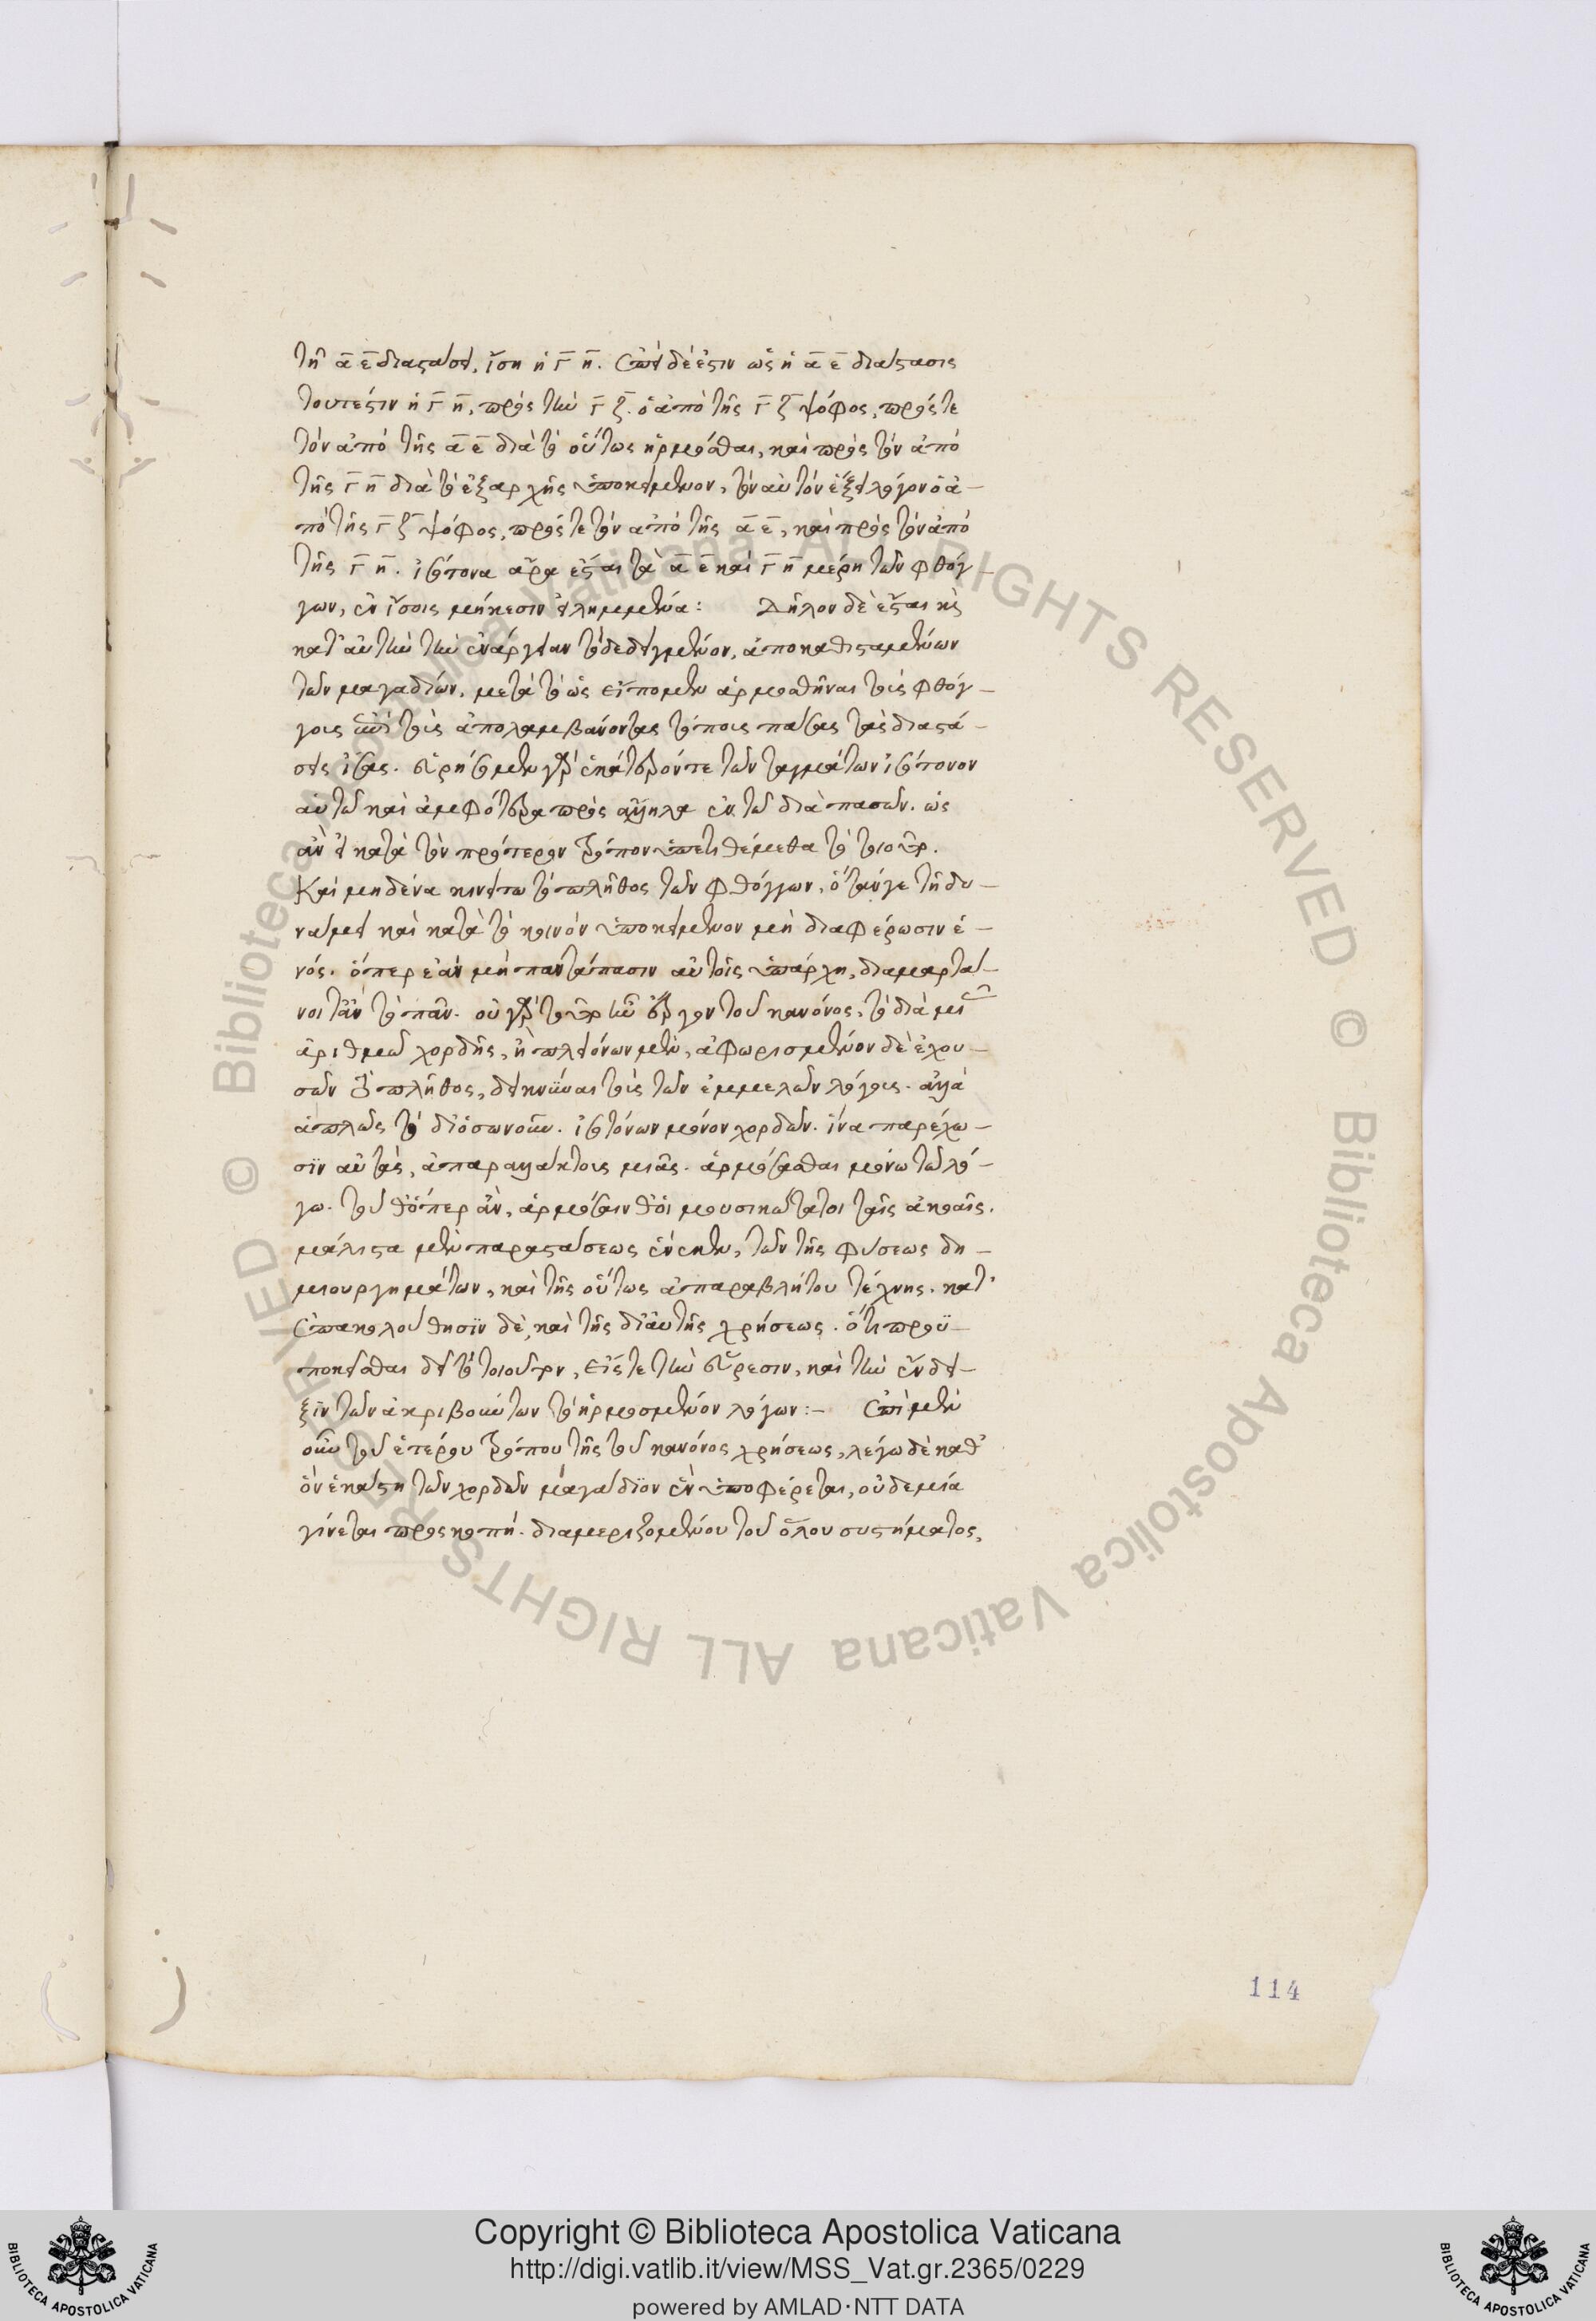 τῇ α̅ ε̅ διαστάσει, ἴση ἡ γ̅ η̅. ἐπεὶ δέ ἐστιν ὡς ἡ α̅ ε̅ διάστασις
τουτέστιν ἡ γ̅ η̅, πρὸς τὴν γ̅ ζ̅. ὁ ἀπὸ τῆς γ̅ ζ̅ ψόφος, πρός τε
τὸν ἀπὸ τῆς α̅ ε̅ διὰ τὸ οὕτως ἡρμόσθαι, καὶ πρὸς τὸν ἀπὸ
τῆς γ̅ η̅ διὰ τὸ ἐξαρχῆς ὑποκείμενον, τὸν αὐτὸν ἕξει λόγον ὁ ἀ-
πὸ τῆς γ̅ ζ̅ ψόφος, πρός τε τὸν ἀπὸ τῆς α̅ ε̅, καὶ πρὸς τὸν ἀπὸ
τῆς γ̅ η̅. ἰσότονα ἄρα ἔσται τὰ α̅ ε̅ καὶ γ̅ η̅ μέρη τῶν φθόγ-
γων, ἐν ἴσοις μήκεσιν εἰλημμένα: Δῆλον δὲ ἔσται κὶς
κατ' αὐτὴν τὴν ἐνάργειαν τὸ δεδειγμένον, ἀποκαθισταμένων
τῶν μαγαδίων, μετὰ τὸ ὡς εἴπομεν ἁρμοσθῆναι τοὺς φθόγ-
γους ἐπὶ τοὺς ἀπολαμβάνοντας τόπους πάσας τὰς διαστά-
σεις ἴσας. εὑρήσομεν γὰρ ἑκάτερόν τε τῶν ταγμάτων ἰσότονον
αὐτῷ καὶ ἀμφότερα πρὸς ἄλληλα ἐν τῷ διὰ πασῶν. ὡς
ἂν εἰ κατὰ τὸν πρότερον τρόπον ὑπετιθέμεθα τὸ τοιοῦτον.
Καὶ μηδένα κινείτω τὸ πλῆθος τῶν φθόγγων, ὅταν γε τῇ δυ-
νάμει καὶ κατὰ τὸ κοινὸν ὑποκείμενον μὴ διαφέρωσιν ἑ-
νός. ὅπερ ἐὰν μὴ παντάπασιν αὐτοῖς ὑπάρχῃ, διαμαρτά-
νοιτ' ἂν τὸ πᾶν. οὐ γὰρ τοῦτο ἦν ἔργον τοῦ κανόνος, τὸ διὰ μιᾶς
ἀριθμῷ χορδῆς, ἢ πλειόνων μὲν, ἀφωρισμένον δὲ ἐχου-
σῶν τὸ πλῆθος, δεικνύναι τοὺς τῶν ἐμμελῶν λόγους. ἀλλὰ
ἁπλῶς τὸ δι' ὁσωνοῦν. ἰσοτόνων μόνον χορδῶν. ἵνα παρέχω-
σιν αὐτὰς, ἀπαραλλάκτους μιᾶς. ἁρμόσασθαι μόνῳ τῷ λό-
γῳ. τοῦθ' ὅπερ ἂν, ἁρμόσαινθ' οἱ μουσικώτατοι ταῖς ἀκοαῖς.
μάλιστα μὲν παραστάσεως ἕνεκεν, τῶν τῆς φύσεως δη-
μιουργημάτων, καὶ τῆς οὕτως ἀπαραβλήτου τέχνης. κατ'
ἐπακολούθησιν δὲ, καὶ τῆς δι' αὐτῆς χρήσεως. ὅτι προϋ-
ποκεῖσθαι δεῖ τὸ τοιοῦτον, εἴς τε τὴν εὕρεσιν, καὶ τὴν ἔνδει-
ξιν τῶν ἀκριβούντων τὸ ἡρμοσμένον λόγων:– Ἐπὶ μὲν
οὖν τοῦ ἑτέρου τρόπου τῆς τοῦ κανόνος χρήσεως, λέγω δὲ καθ'
ὃν ἑκάστῃ τῶν χορδῶν μαγάδιον ἓν ὑποφέρεται, οὐδεμία
γίνεται προσκοπή. διαμεριζομένου τοῦ ὅλου συστήματος,
114
Copyright © Biblioteca Apostolica Vaticana
http://digi.vatlib.it/view/MSS_Vat.gr.2365/0229
powered by AMLAD·NTT DATA